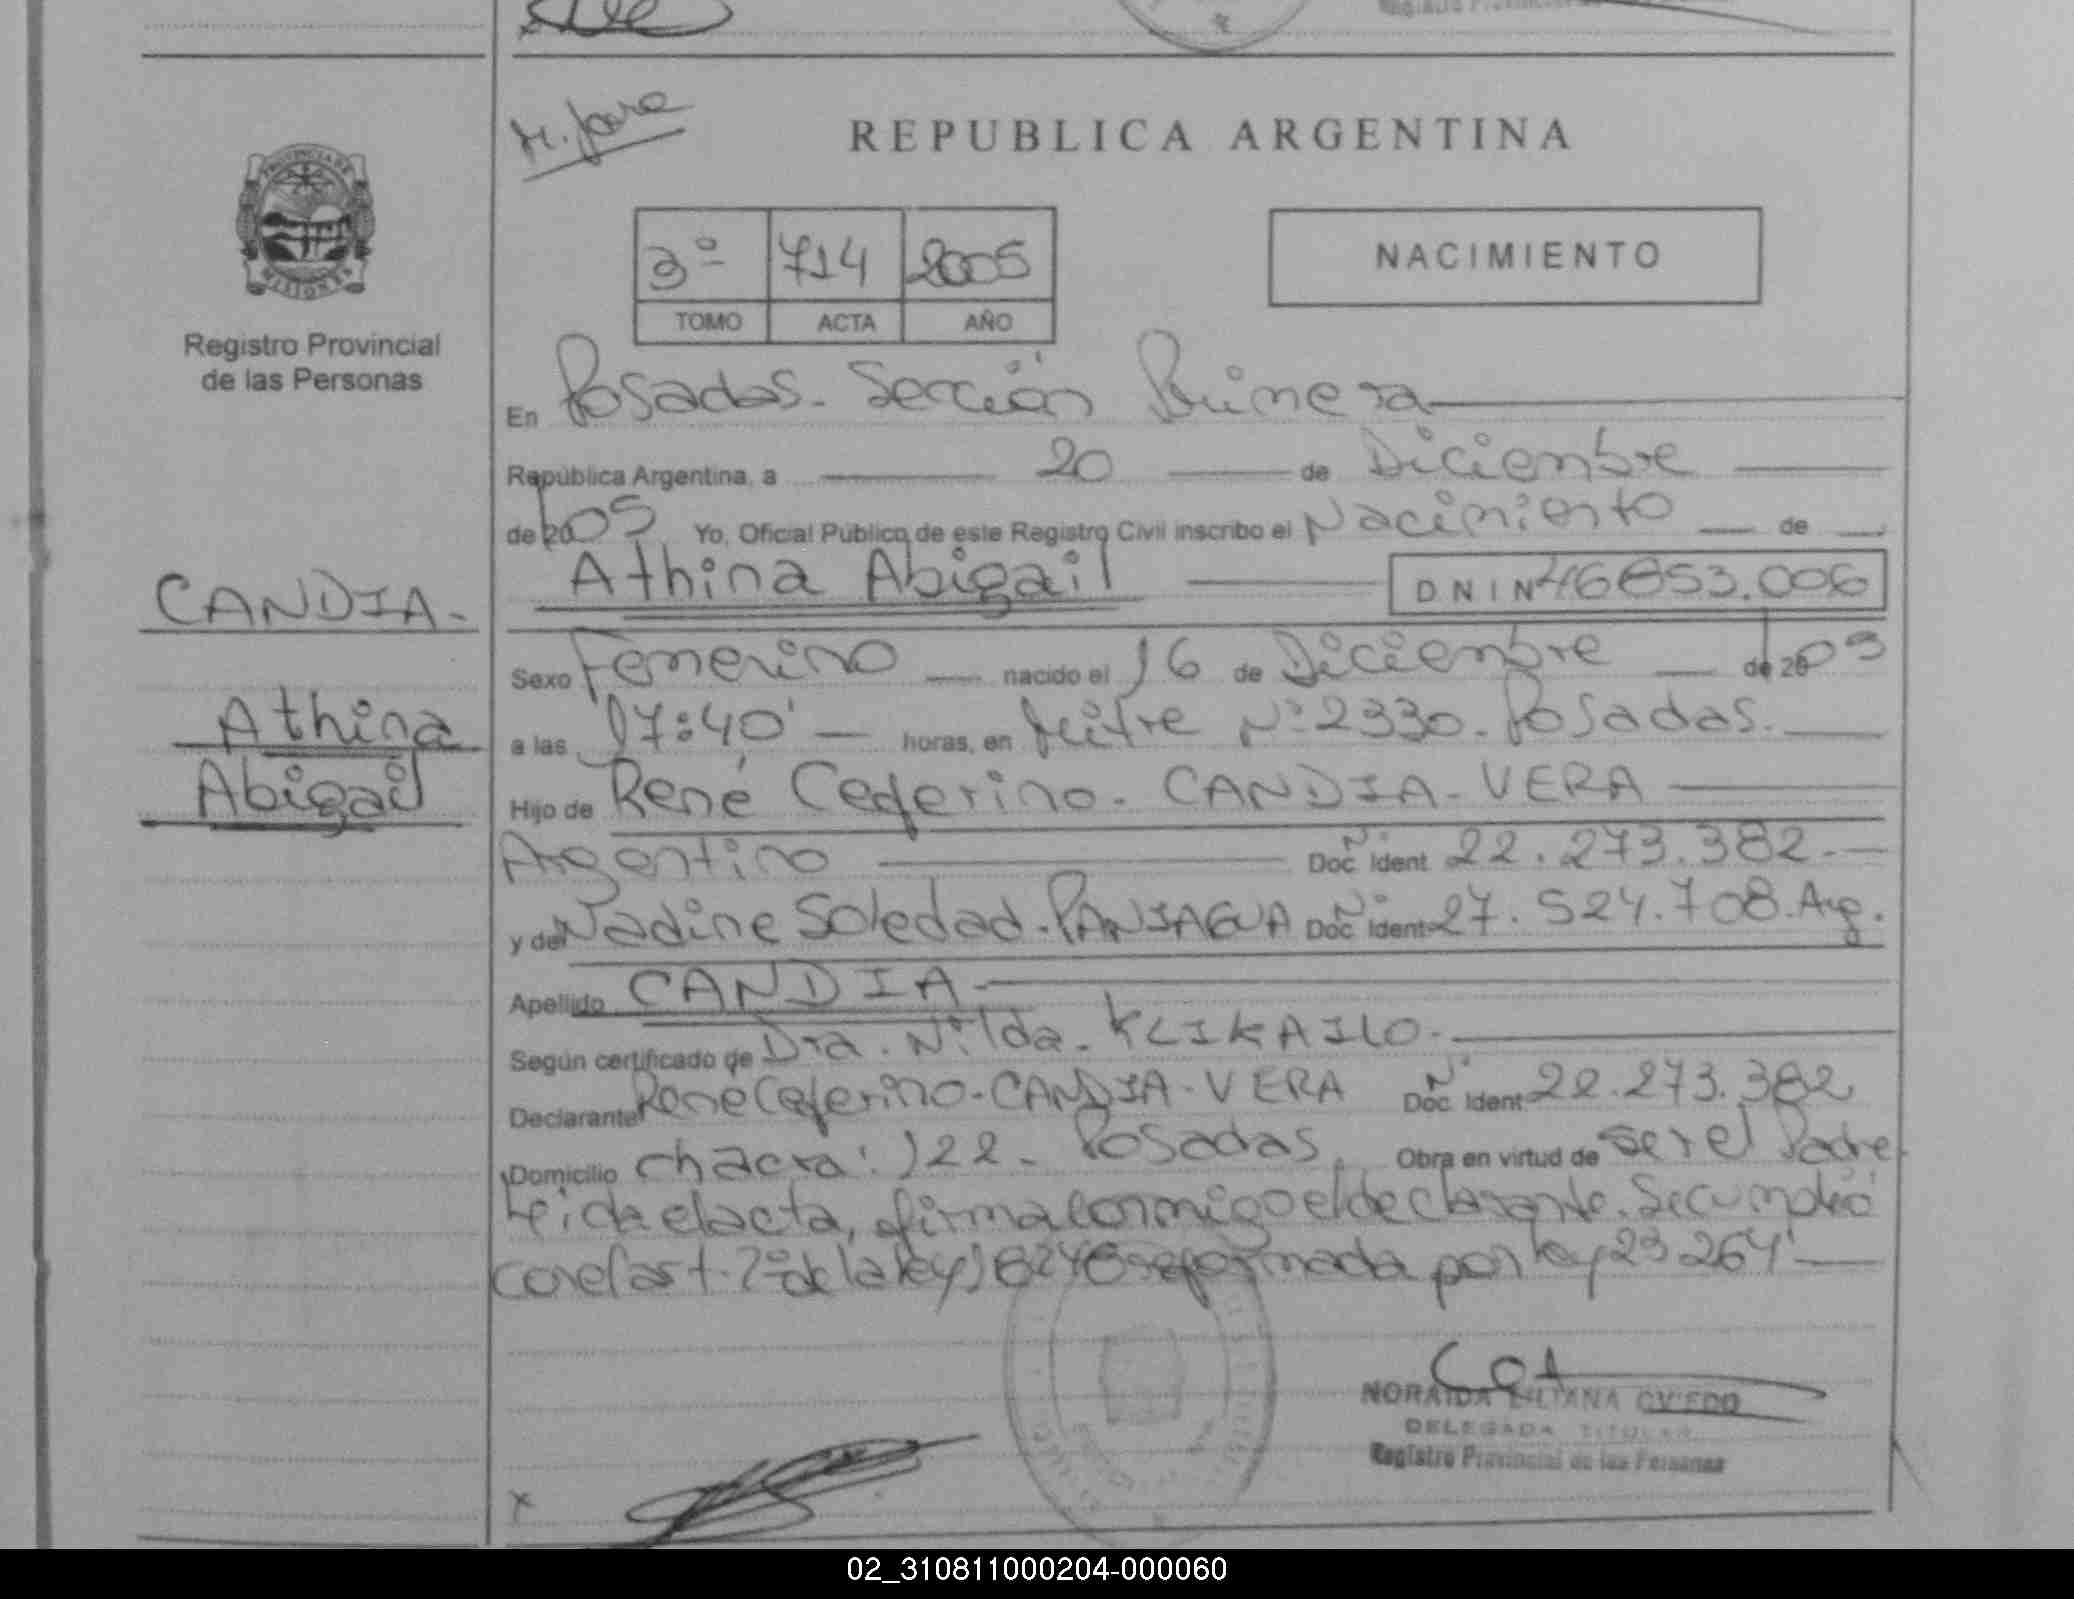 M. Jara
REPUBLICA ARGENTINA
3º 714 2005
TOMO ACTA AÑO
NACIMIENTO
PROVINCIA DE
MISIONES
Registro Provincial
de las Personas
En Posadas. Sección Primera
República Argentina, a 20 de Diciembre
de 2005 Yo, Oficial Público de este Registro Civil inscribo el Nacimiento de
Athina Abigail DNI Nº 46853.006
CANDIA.
Athina
Abigail
Sexo Femenino nacido el 16 de Diciembre de 2005
a las 17:40' horas, en Mitre Nº 2330. Posadas.
Hijo de René Ceferino. CANDIA - VERA
Argentino Nº Doc. Ident 22.273.382.
y de Nadine Soledad. PANIAGUA Nº Doc. Ident 27.524.708. Arg.
Apellido CANDIA
Según certificado de Dra. Nilda. KLIKAILO.
Declarante René Ceferino - CANDIA - VERA Nº Doc. Ident. 22.273.382
Domicilio chacra: 122. Posadas. Obra en virtud de ser el Padre
Leida el acta, firma conmigo el declarante. Se cumplió
con el art. 2º de la ley 18248 reformada por ley 23264
NORAIDA LILIANA OVIEDO
DELEGADA TITULAR
Registro Provincial de las Personas
x
02_310811000204-000060